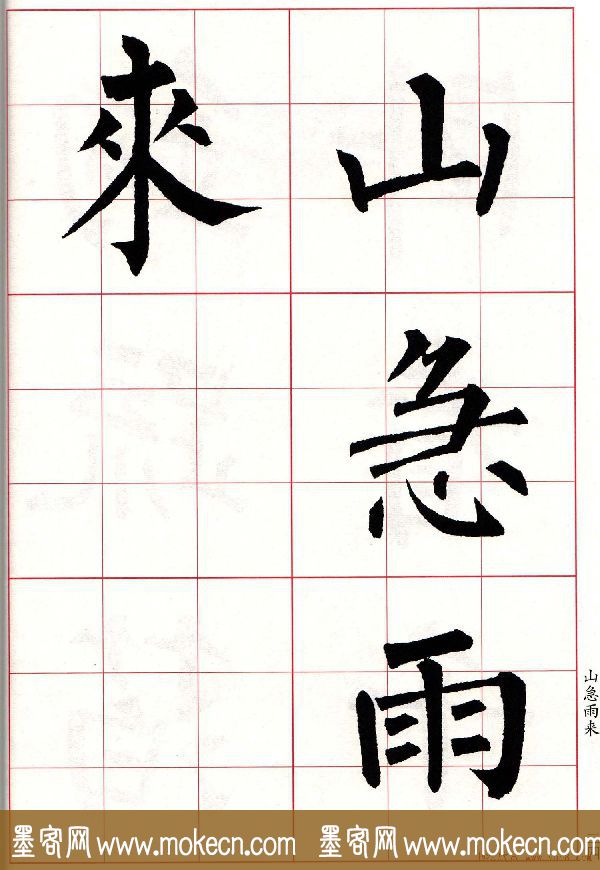 山急雨
來
山急雨来
墨客网 www.mokecn.com 墨客网 www.mokecn.com